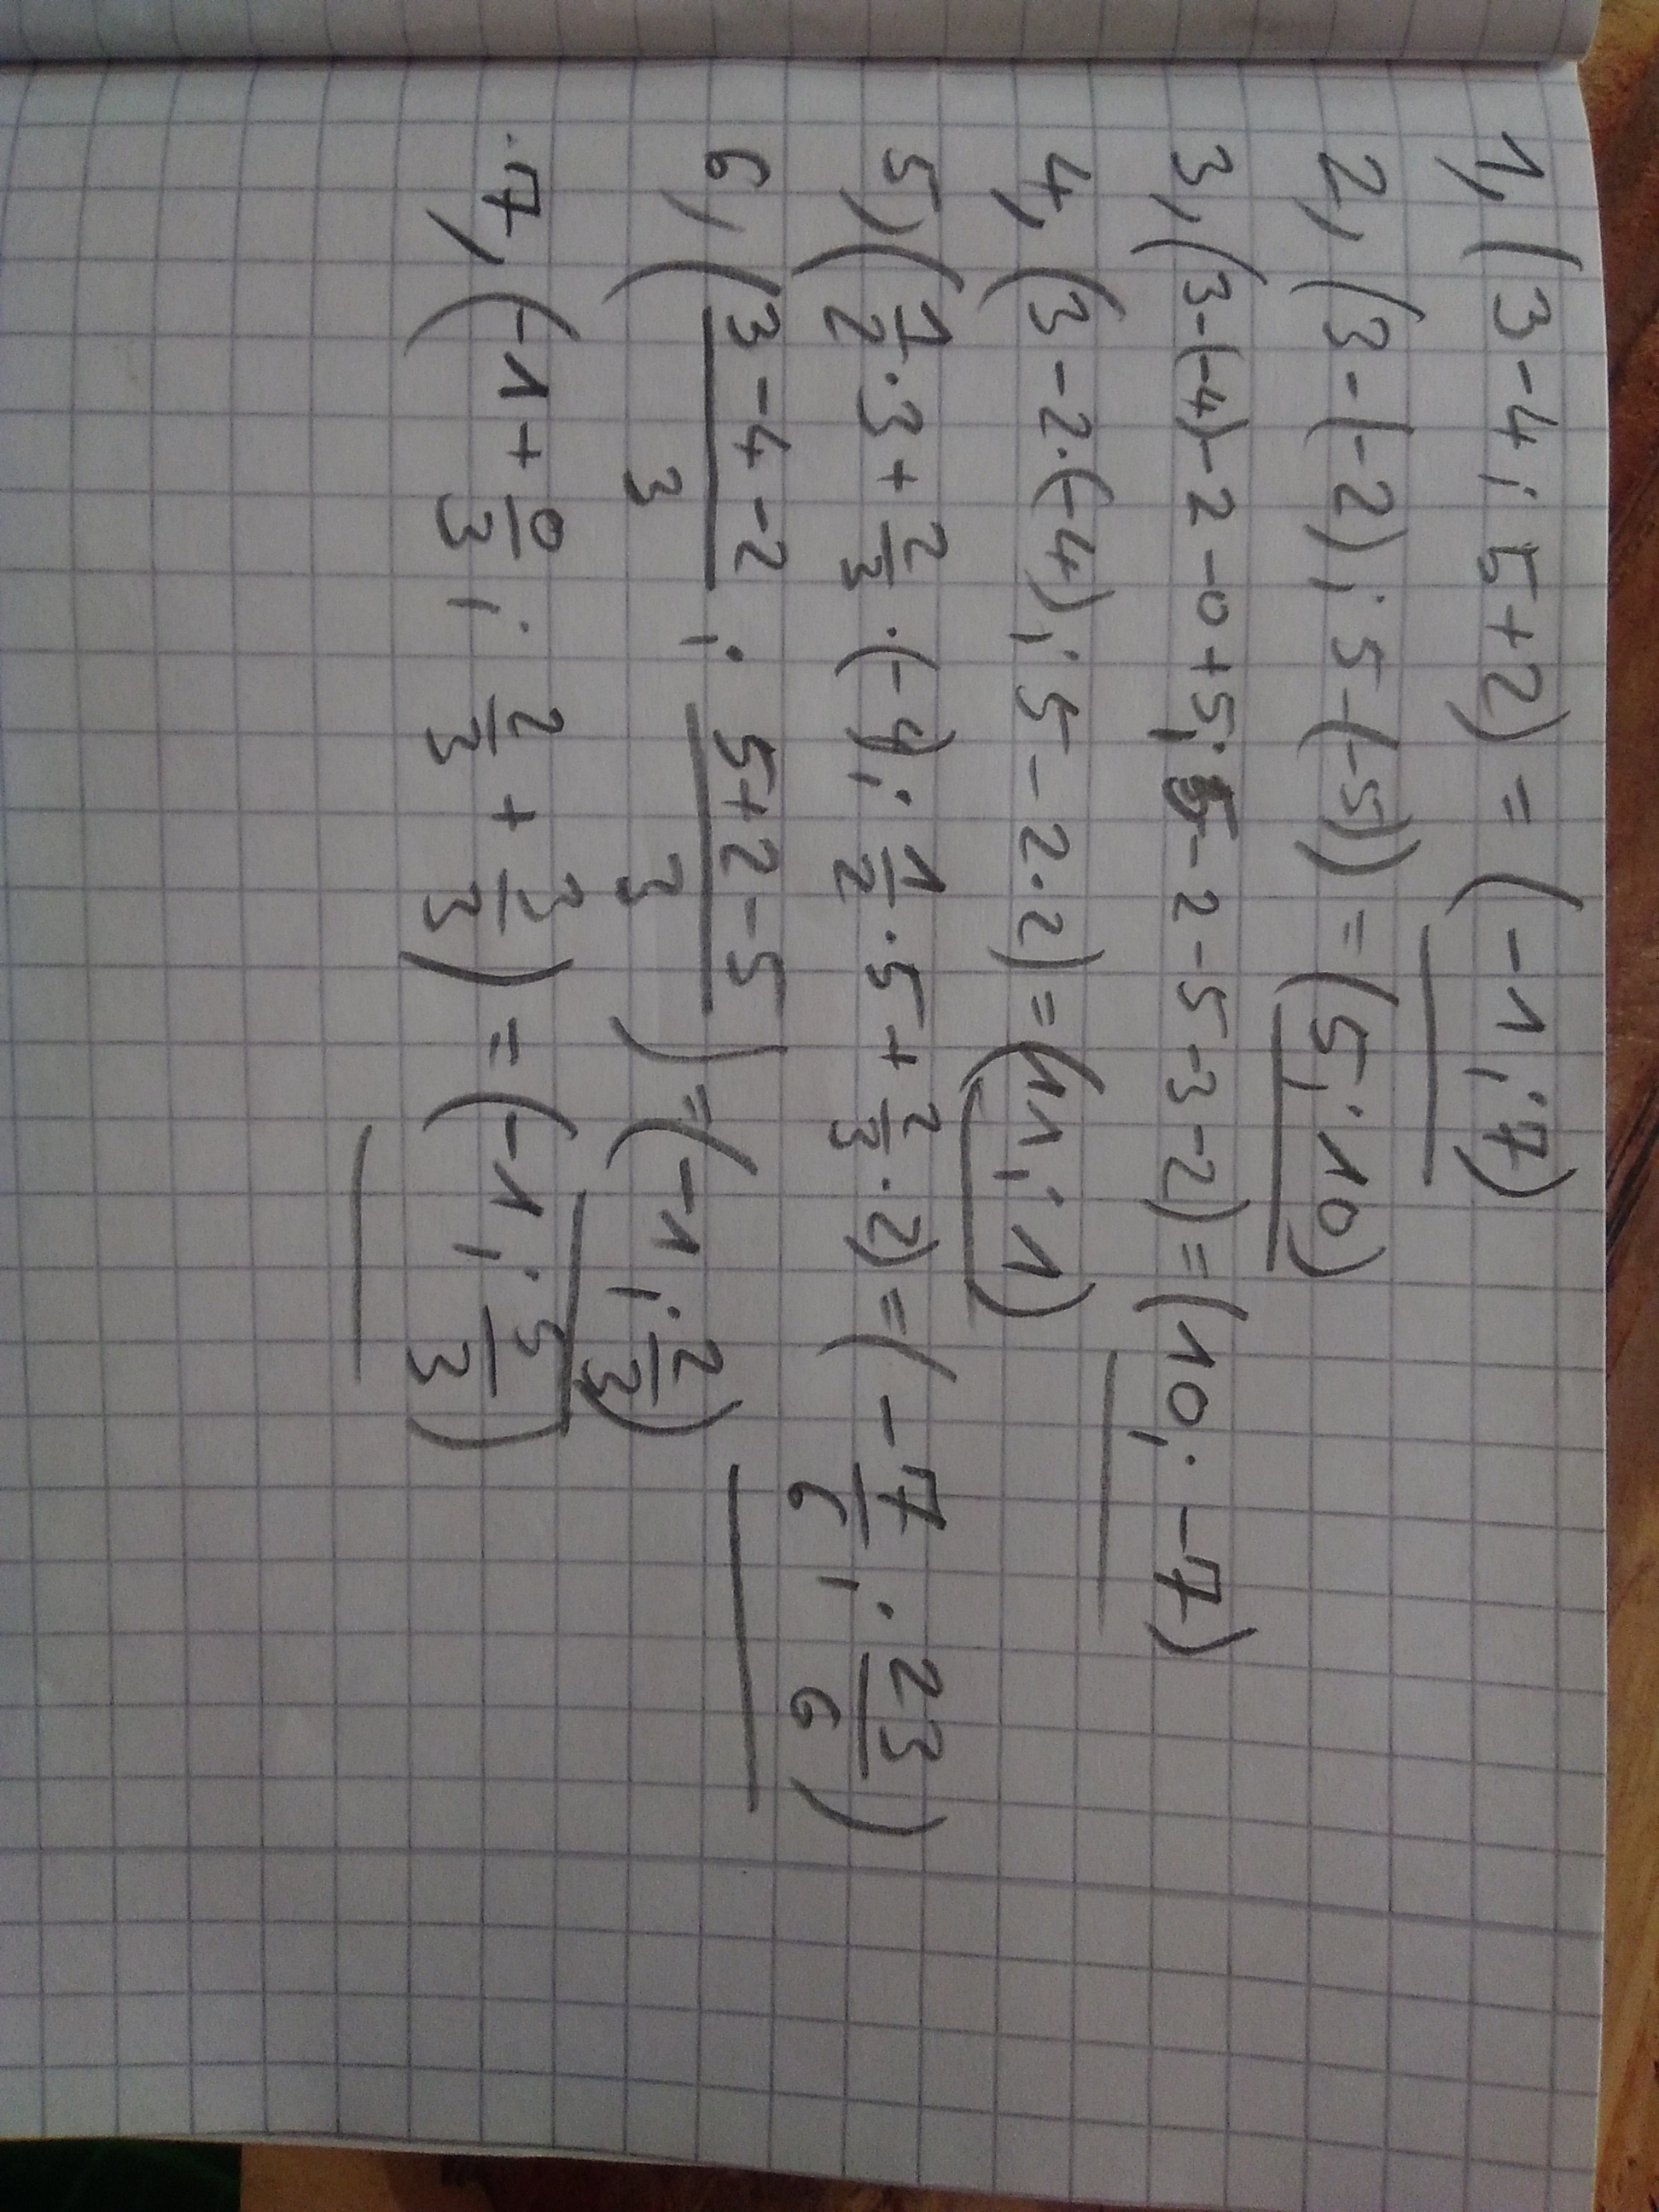 1, (3-4; 5+2) = (-1; 7)
2, (3-(-2); 5-(-5)) = (5; 10)
3, (3-(-4)-2-0+5; 5-2-5-3-2) = (10; -7)
4, (3-2·(-4); 5-2·2) = (11; 1)
5) (1/2·3+2/3·(-4); 1/2·5+2/3·2) = (-7/6; 23/6)
6) ((3-4-2)/3; (5+2-5)/3) = (-1; 2/3)
7) (-1+0/3; 2/3+3/3) = (-1; 5/3)